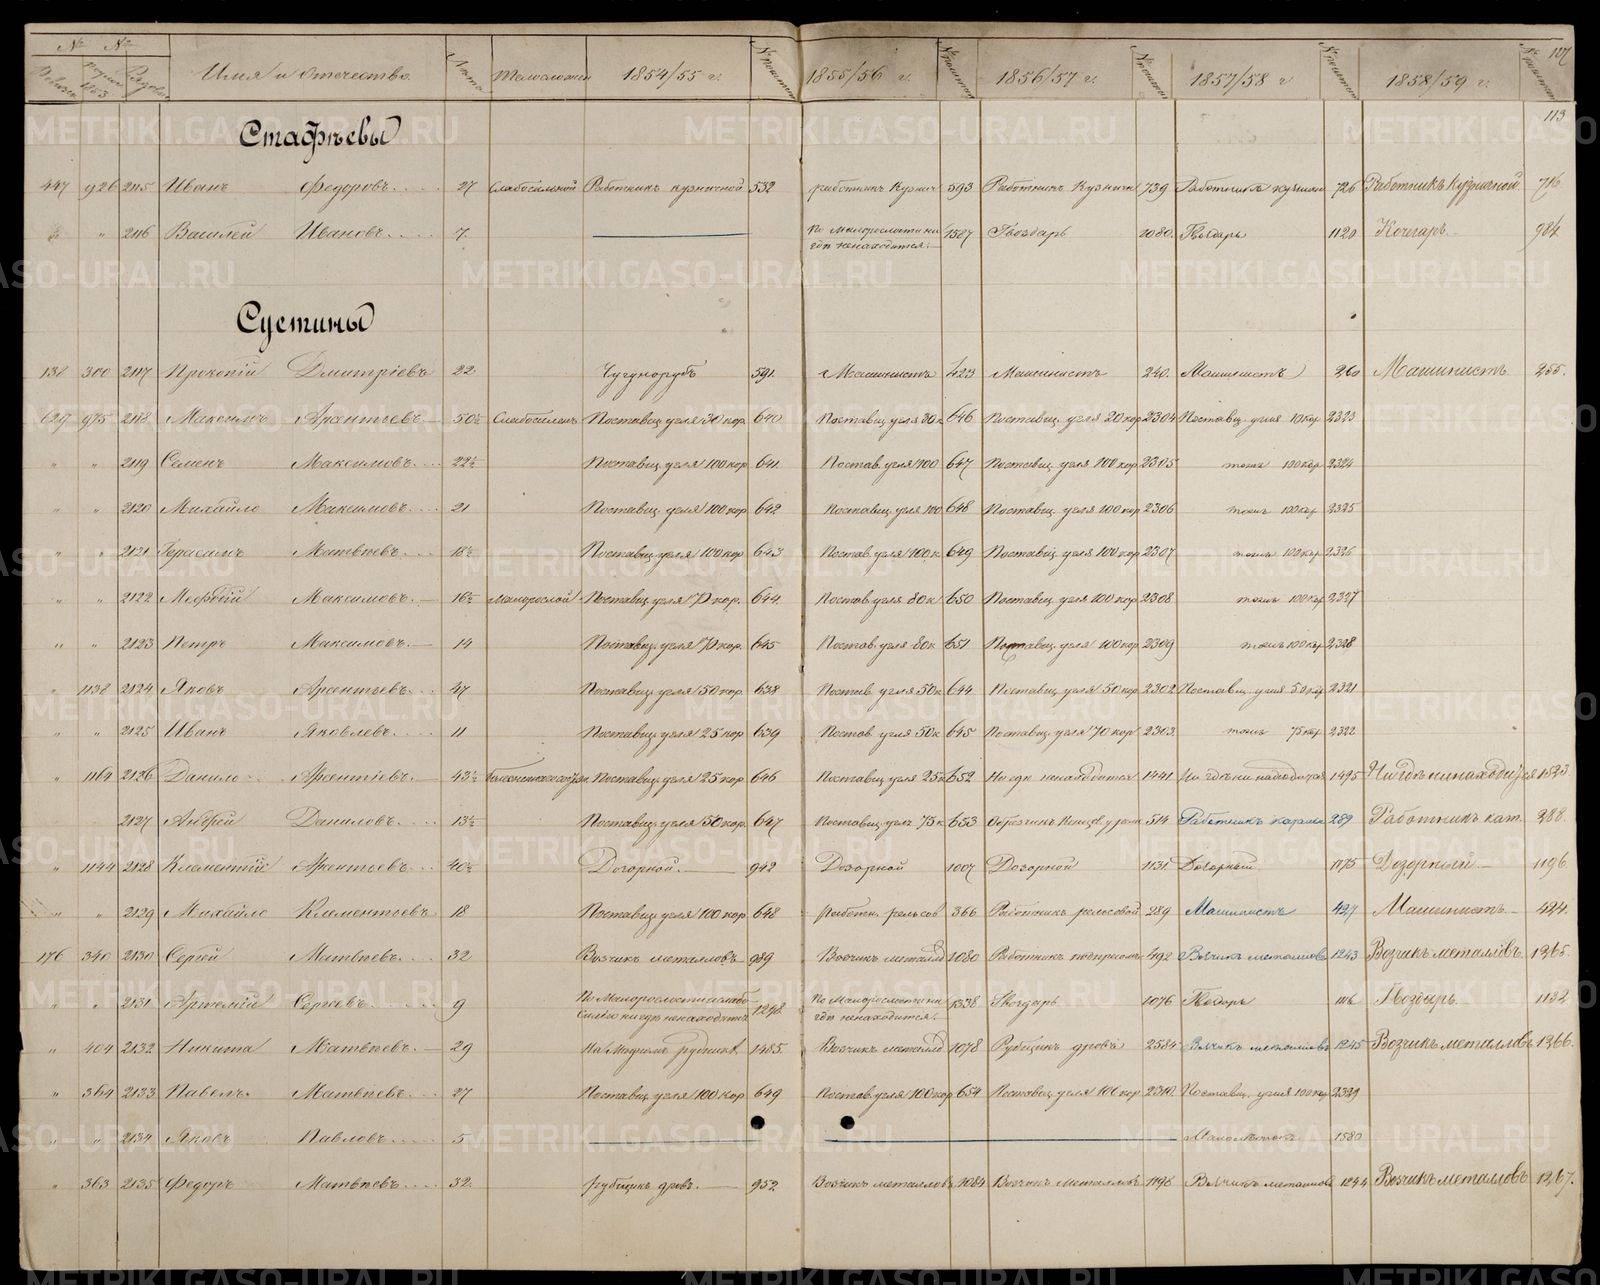 107
№ № Имя и Отчество. Лѣта 1854/55 г. 1855/56 г. 1856/57 г. 1857/58 г 1858/59 г.
113
Стафѣевы
447 926 2115 Иванъ Федоровъ. 27 Слабосильной Работникъ кузничной 532 работникъ Кузнич 593 Работникъ Кузничн 739 Работникъ кузнич 726 Работникъ кузничной. 716
" 2116 Василей Ивановъ. 7. По Малорослости ни гдѣ ненаходится. 1527 Гвоздарь 1080. Гвоздарь 1120 Кочегаръ 984
Сустины
138 300 2117 Прокопій Дмитріевъ 22 Чугунорубъ 591. Машинистъ 423 Машинистъ 240. Машинистъ 260 Машинистъ 255.
629 975 2118 Максимъ Арентьевъ 50½ Слабосиленъ Поставщ. угля 30 кор. 640 Поставщ угля 30 к 646 Поставщ. угля 20 кор 2304 Поставщ. угля 10 кор 2323
" " 2119 Семенъ Максимовъ. 22½ Поставщ. угля 100 кор 641. Постав. угля 100 647 Поставщ угля 100 кор 2305 тожъ 100 кор 2324
" " 2120 Михайло Максимовъ. 21 Поставщ. угля 100 кор 642 Поставщ угля 100 648 Поставщ. угля 100 кор 2306 тожъ 100 кор 2325
" " 2121 Герасимъ Матвѣевъ. 18½ Поставщ. угля 100 кор 643 Постав. угля 100 к 649 Поставщ угля 100 кор 2307 тожъ 100 кор 2326
" " 2122 Мефодій Максимовъ. 16½ Малорослой Поставщ угля 70 кор. 644. Постав. угля 80 к 650 Поставщ угля 100 кор 2308 тожъ 100 кор 2327
" " 2123 Петръ Максимовъ. 14 Поставщ. угля 70 кор. 645 Постав. угля 80 к 651 Поставщ угля 100 кор 2309 тожъ 100 кор 2328
" 1138 2124 Яковъ Арентьевъ. 47 Поставщ. угля 50 кор. 638 Постав. угля 50 к 644 Поставщ. угля 50 кор 2302 Поставщ. угля 50 кор 2321
" " 2125 Иванъ Яковлевъ. 11 Поставщ. угля 25 кор 639 Постав угля 50 к 645 Поставщ. угля 70 кор 2303. тожъ 75 кор 2322
" 1164 2126 Данило Арентіевъ. 42½ Поставщ. угля 25 кор 646 Поставщ угля 25 к 652 Ни гдѣ ненаходится 1441. Ни гдѣ ни находится 1495 Ни гдѣ нинаходится 1523.
2127 Андрей Даниловъ. 13½ Поставщ. угля 50 кор. 647 Поставщ. угля 75 к 653 514 Работникъ 289 Работникъ кат. 288
" 1144 2128 Клементій Арентьевъ. 40½ Дозорной. 942 Дозорной 1007 Дозорной 1131. Дозорный 1175 Дозорный 1196
" " 2129 Михайло Клементьевъ 18 Поставщ угля 100 кор 648 Работн. рельсов 366 Работникъ рельсовой 289 Машинистъ 427 Машинистъ 424.
176 340 2130 Сергей Матвѣевъ. 32 Возчикъ металловъ 989 Возчикъ металлов 1080 Работникъ 492 Возчикъ металловъ 1243 Возчикъ металловъ. 1265.
" " 2131 Артемій Сергѣевъ. 9 По Малорослости и слабосилію нигдѣ ненаходится 1298 По Малорослости ни гдѣ ненаходится. 1338 Гвоздарь 1076 Гвоздарь 1116 Гвоздарь. 1132
" 404 2132 Никита Матвѣевъ. 29 На Мѣдномъ рудникѣ 1485. Возчикъ металлов 1078 Рубщикъ дровъ 2584 Возчикъ металловъ 1245 Возчикъ металловъ 1266.
" 364 2133 Павелъ Матвѣевъ. 27 Поставщ угля 100 кор 649 Постав. угля 100 кор 654 Поставщ. угля 100 кор 2310. Поставщ. угля 100 кор 2329
" " 2134 Яковъ Павловъ. 5 Малолѣтокъ 1580
" 363 2135 Федоръ Матвѣевъ. 32. рубщикъ дровъ. 952. Возчикъ металловъ 1084 Возчикъ металловъ 1196 Возчикъ металловъ 1244 Возчикъ металловъ 1267.
METRIKI.GASO-URAL.RU